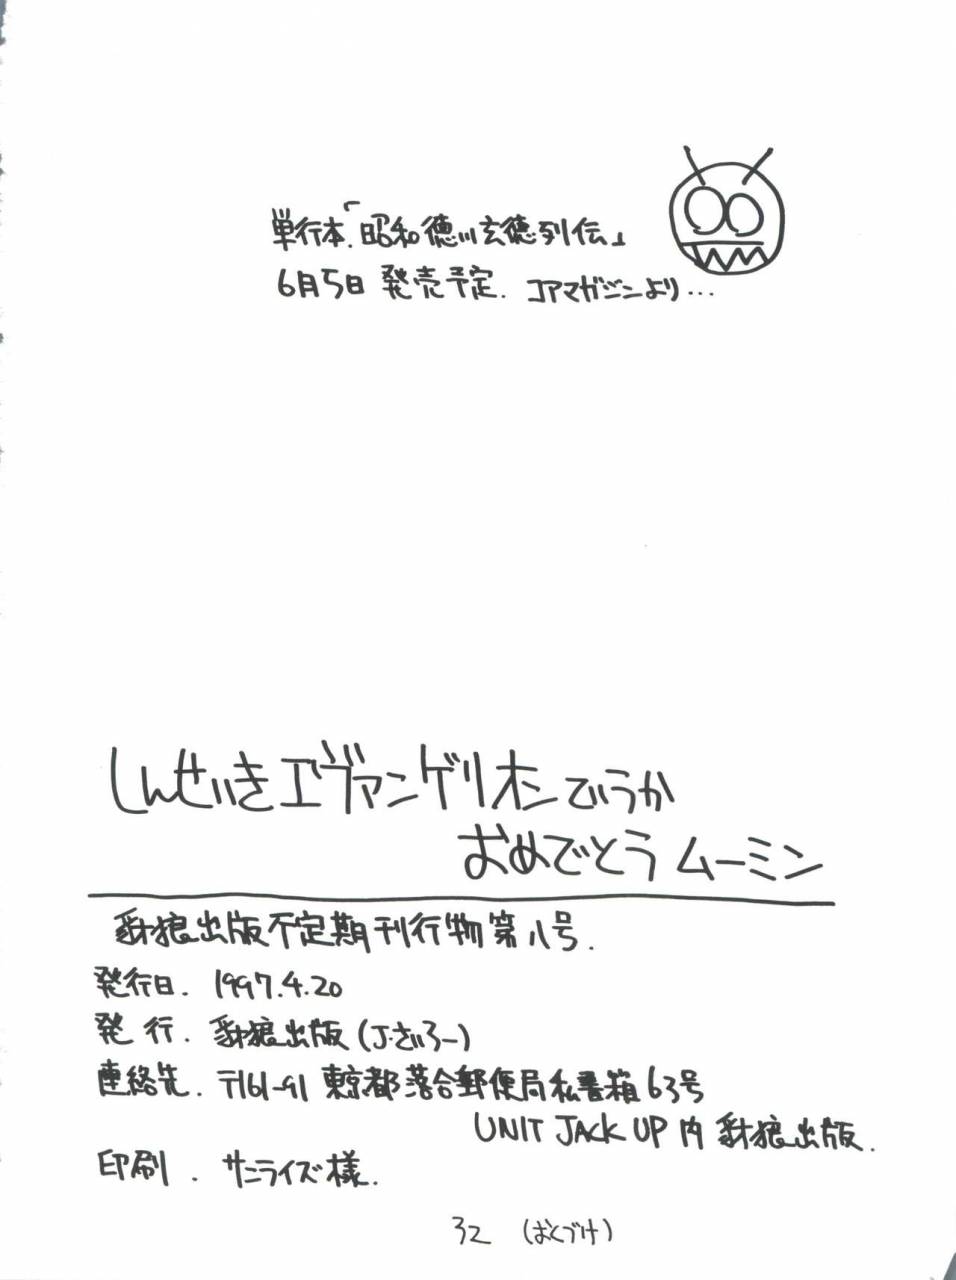 単行本.「昭和徳川玄徳列伝」
6月5日 発売予定. コアマガジンより…
しんせいきエヴァンゲリオンでいうか
おめでとう ムーミン
豺狼出版不定期刊行物第八号.
発行日. 1997.4.20
発 行. 豺狼出版(J.さいろー)
連絡先. 〒161-91 東京都落合郵便局私書箱63号
UNIT JACK UP 内 豺狼出版.
印刷 . サンライズ様.
32 (おくづけ)